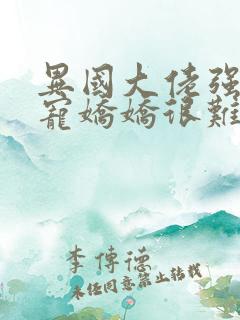 異國大佬强
寵嬌嬌很難
李傳德
未經同意禁止轉載